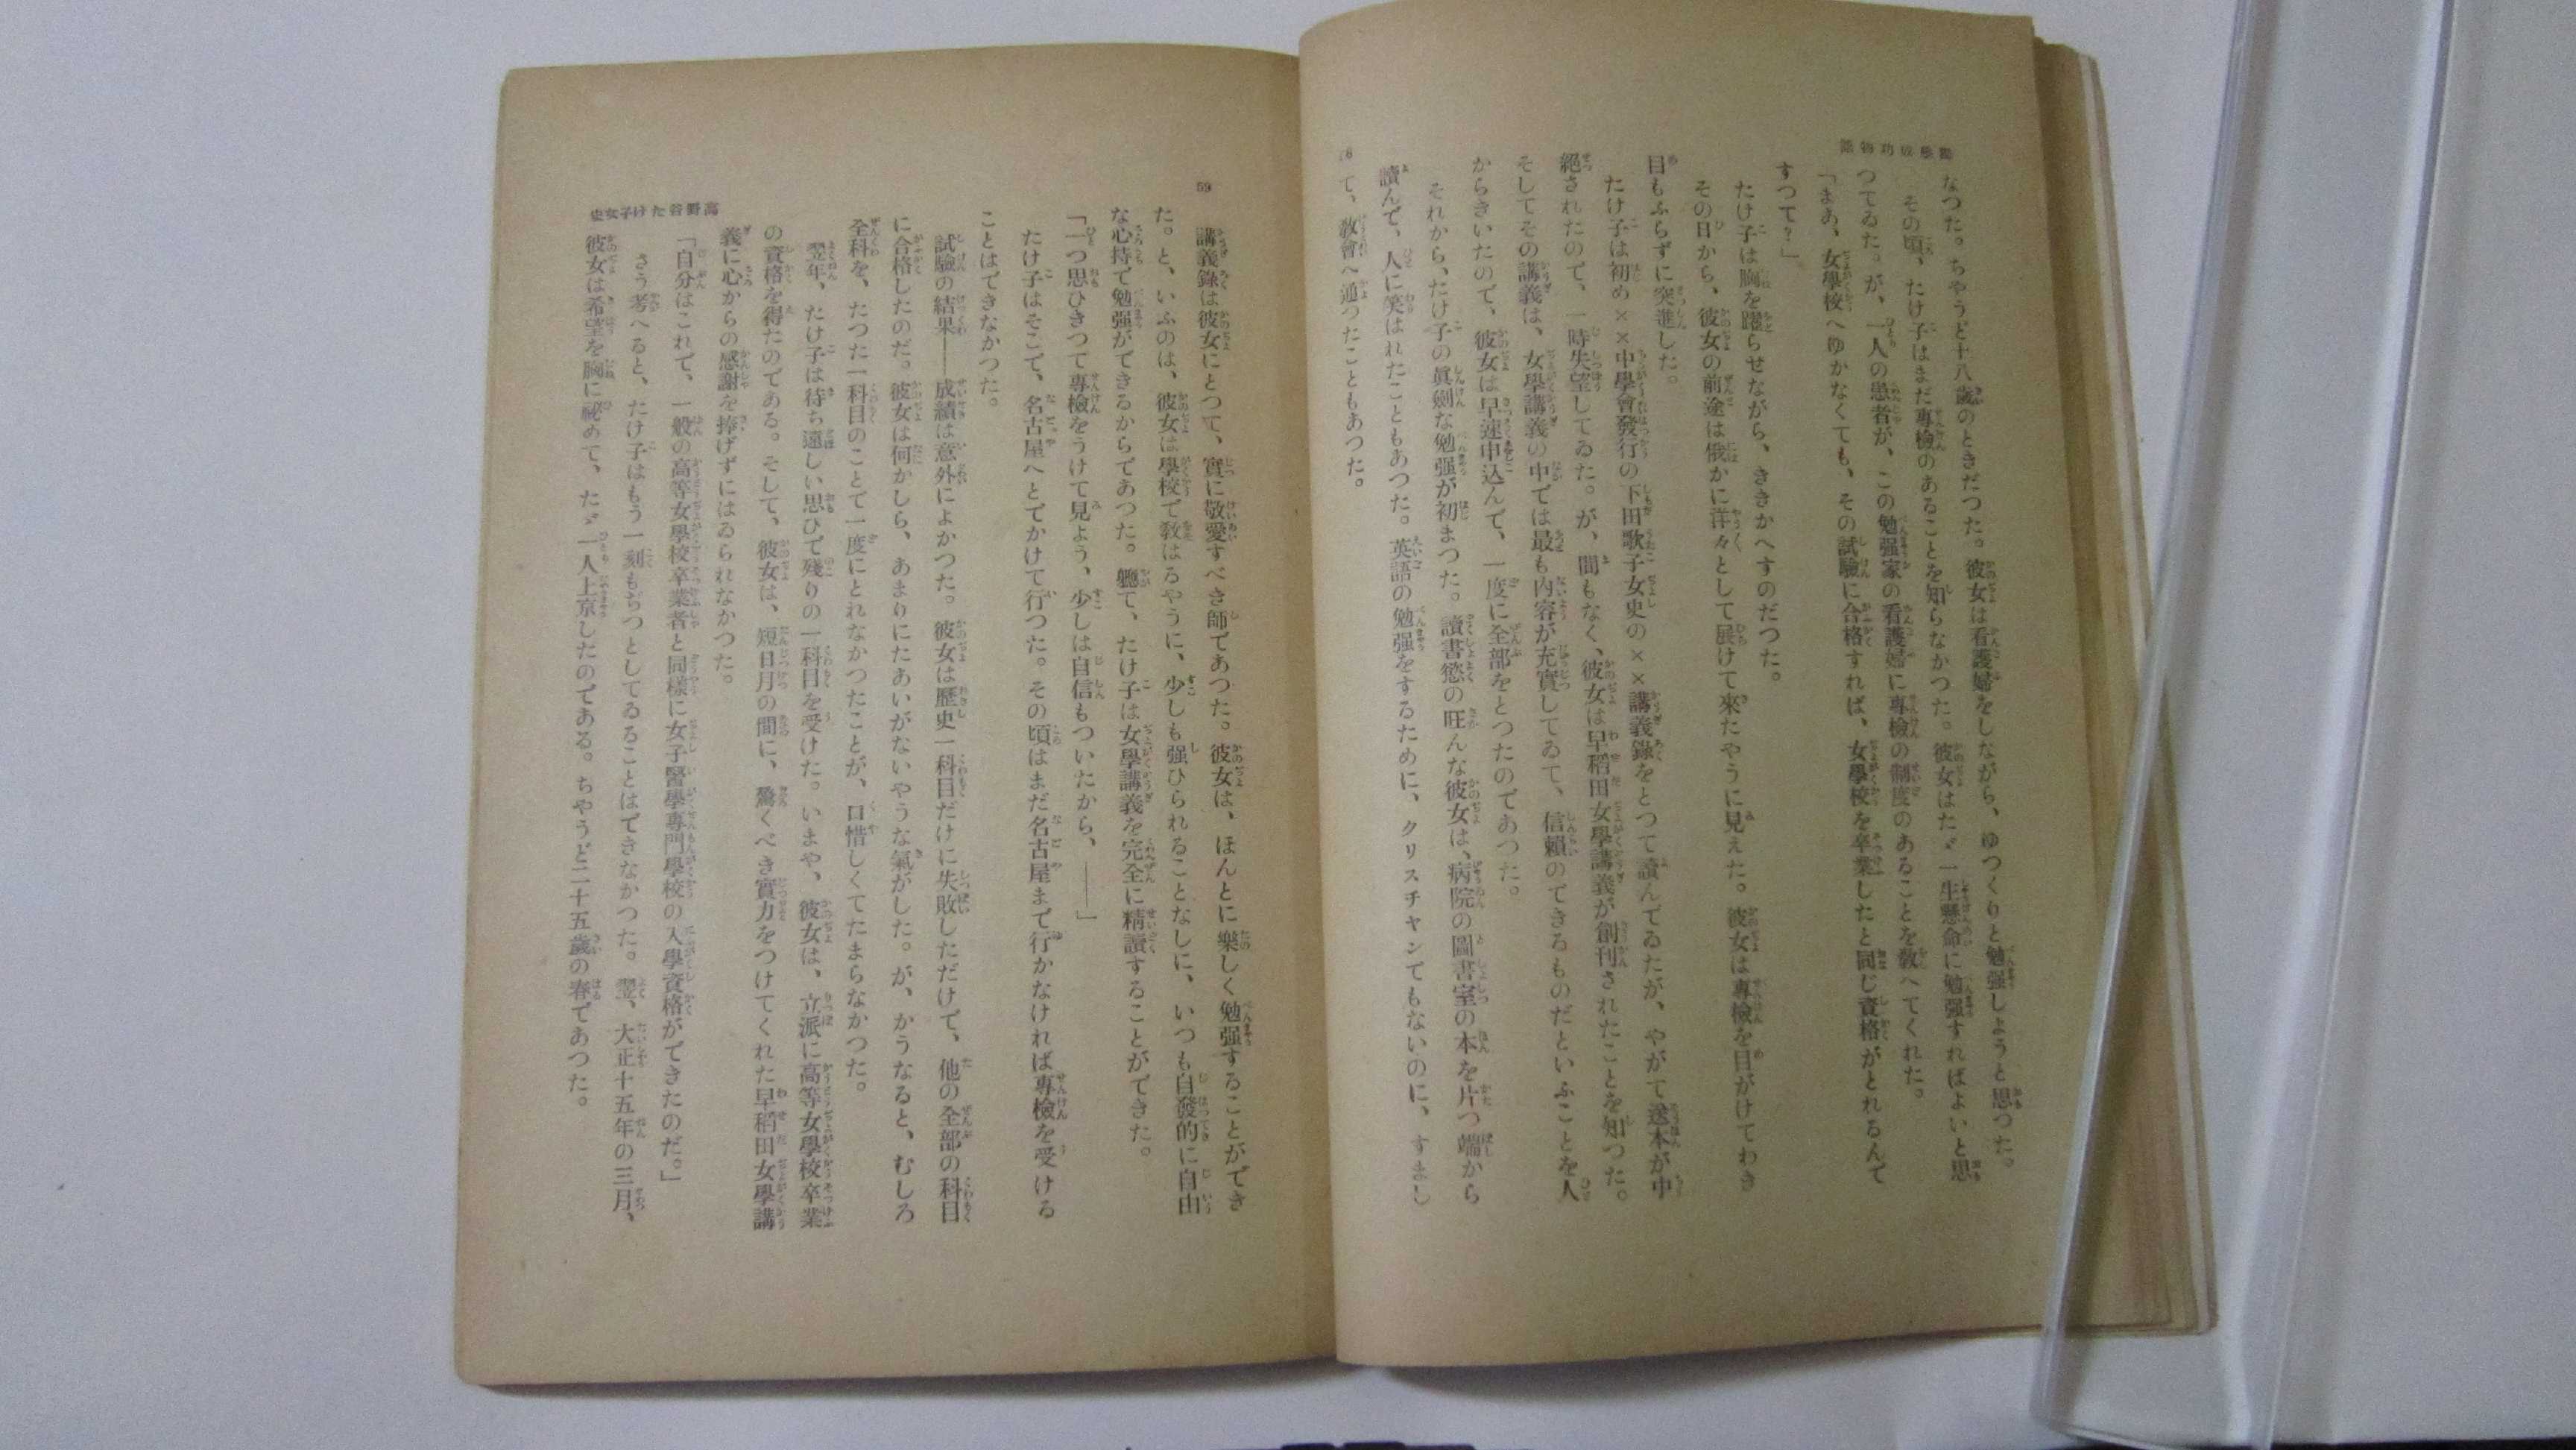 獨學成功物語
なつた。ちやうど十八歲のときだつた。彼女は看護婦をしながら、ゆつくりと勉强しようと思つた。
その頃、たけ子はまだ專檢のあることを知らなかつた。彼女はたゞ一生懸命に勉强すればよいと思
つてゐた。が、一人の患者が、この勉强家の看護婦に專檢の制度のあることを敎へてくれた。
「まあ、女學校へゆかなくても、その試驗に合格すれば、女學校を卒業したと同じ資格がとれるんで
すつて？」
たけ子は胸を躍らせながら、ききかへすのだつた。
その日から、彼女の前途は俄かに洋々として展けて來たやうに見えた。彼女は專檢を目がけてわき
目もふらずに突進した。
たけ子は初め××中學會發行の下田歌子女史の××講義錄をとつて讀んでゐたが、やがて送本が中
絕されたので、一時失望してゐた。が、間もなく、彼女は早稻田女學講義が創刊されたことを知つた。
そしてその講義は、女學講義の中では最も內容が充實してゐて、信賴のできるものだといふことを人
からきいたので、彼女は早速申込んで、一度に全部をとつたのであつた。
それから、たけ子の眞劍な勉强が初まつた。讀書慾の旺んな彼女は、病院の圖書室の本を片つ端から
讀んで、人に笑はれたこともあつた。英語の勉强をするために、クリスチヤンでもないのに、すまし
て、敎會へ通つたこともあつた。
59
講義錄は彼女にとつて、實に敬愛すべき師であつた。彼女は、ほんとに樂しく勉强することができ
た。と、いふのは、彼女は學校で敎はるやうに、少しも强ひられることなしに、いつも自發的に自由
な心持で勉强ができるからであつた。軈て、たけ子は女學講義を完全に精讀することができた。
「一つ思ひきつて專檢をうけて見よう、少しは自信もついたから、――」
たけ子はそこで、名古屋へとでかけて行つた。その頃はまだ名古屋まで行かなければ專檢を受ける
ことはできなかつた。
試驗の結果――成績は意外によかつた。彼女は歷史一科目だけに失敗しただけで、他の全部の科目
に合格したのだ。彼女は何かしら、あまりにたあいがないやうな氣がした。が、かうなると、むしろ
全科を、たつた一科目のことで一度にとれなかつたことが、口惜しくてたまらなかつた。
翌年、たけ子は待ち遠しい思ひで殘りの一科目を受けた。いまや、彼女は、立派に高等女學校卒業
の資格を得たのである。そして、彼女は、短日月の間に、驚くべき實力をつけてくれた早稻田女學講
義に心からの感謝を捧げずにはゐられなかつた。
「自分はこれで、一般の高等女學校卒業者と同樣に女子醫學專門學校の入學資格ができたのだ。」
さう考へると、たけ子はもう一刻もぢつとしてゐることはできなかつた。翌、大正十五年の三月、
彼女は希望を胸に祕めて、たゞ一人上京したのである。ちやうど二十五歲の春であつた。
高野谷たけ子女史